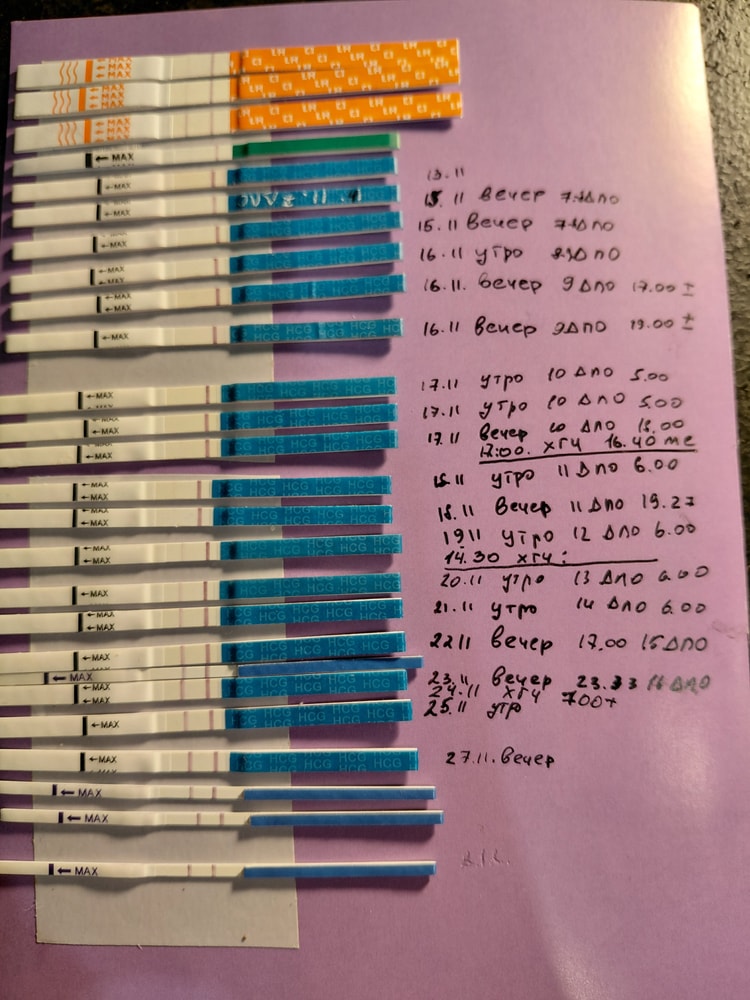 MAX
MAX
MAX
MAX
MAX
MAX
MAX
MAX
← MAX
13.11
←MAX
15.11 вечер ДПО
←MAX
15.11 вечер ДПО
←MAX
16.11 утро ДПО
←MAX
16.11. вечер 9 ДПО 17.00 ±
←MAX
16.11 вечер 9 ДПО 19.00 ±
←MAX
HCG HCG HCG HCG
17.11 утро 10 ДПО 5.00
←MAX
17.11 утро 10 ДПО 5.00
←MAX
17.11 вечер 10 ДПО 18.00
←MAX
17:00. ХГЧ 16.40 ме
18.11 утро 11 ДПО 6.00
←MAX
18.11 вечер 11 ДПО 19.27
←MAX
19 11 утро 12 ДПО 6.00
←MAX
14.30 ХГЧ:
20.11 утро 13 ДПО 6.00
←MAX
21.11 утро 14 ДПО 6.00
←MAX
22 11 вечер 17.00 15 ДПО
←MAX
← MAX
23.11 вечер 23.33 16 ДПО
←MAX
24.11 ХГЧ 700+
25.11 утро
←MAX
27.11. вечер
←MAX
HCG HCG HCG
← MAX
← MAX
← MAX